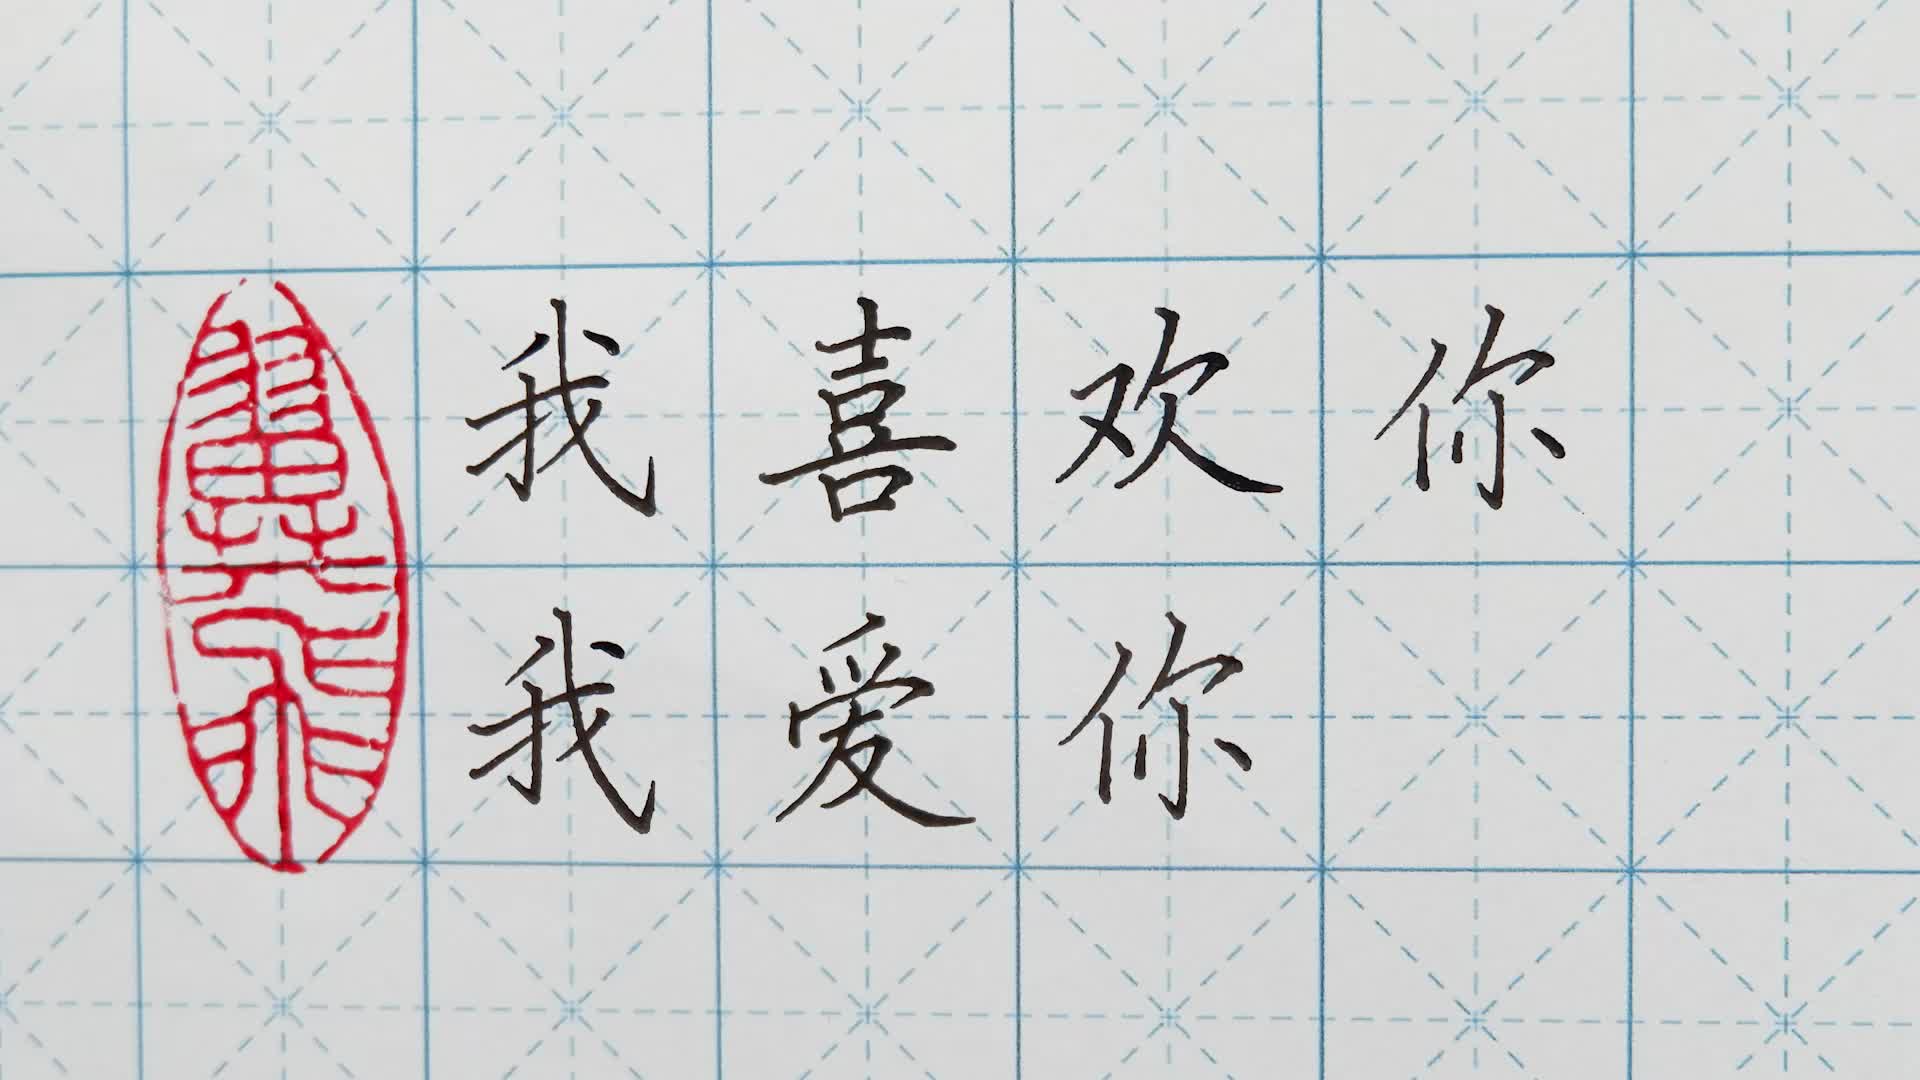 我喜欢你
我爱你